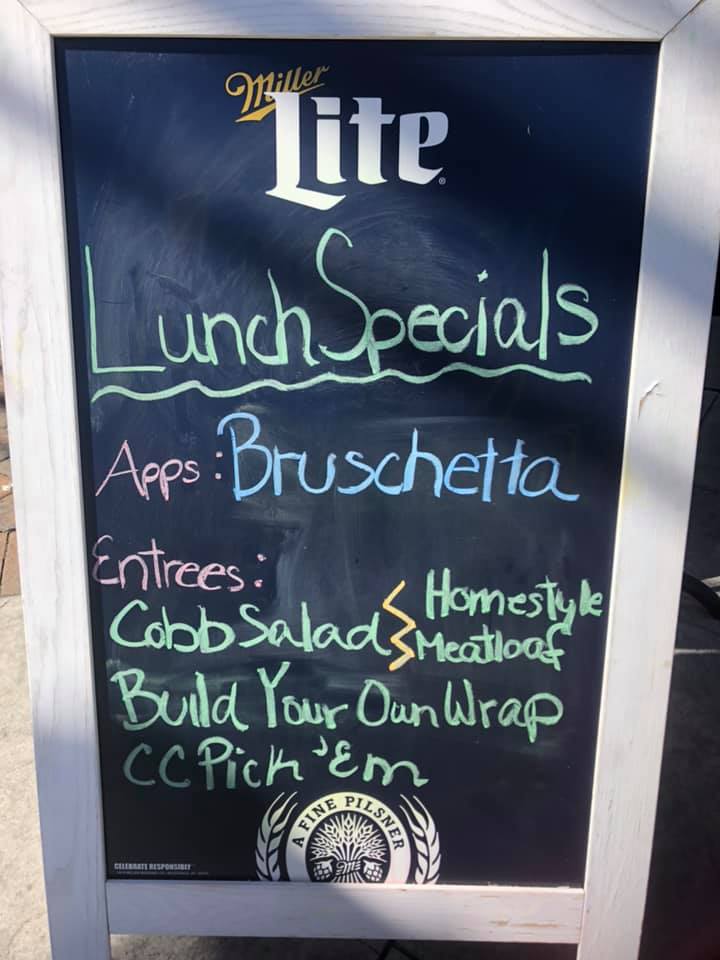 Miller
Lite
Lunch Specials
Apps: Bruschetta
Entrees:
Cobb Salad Homestyle Meatloaf
Build Your Own Wrap
CC Pick 'Em
A FINE PILSNER
CELEBRATE RESPONSIBLY